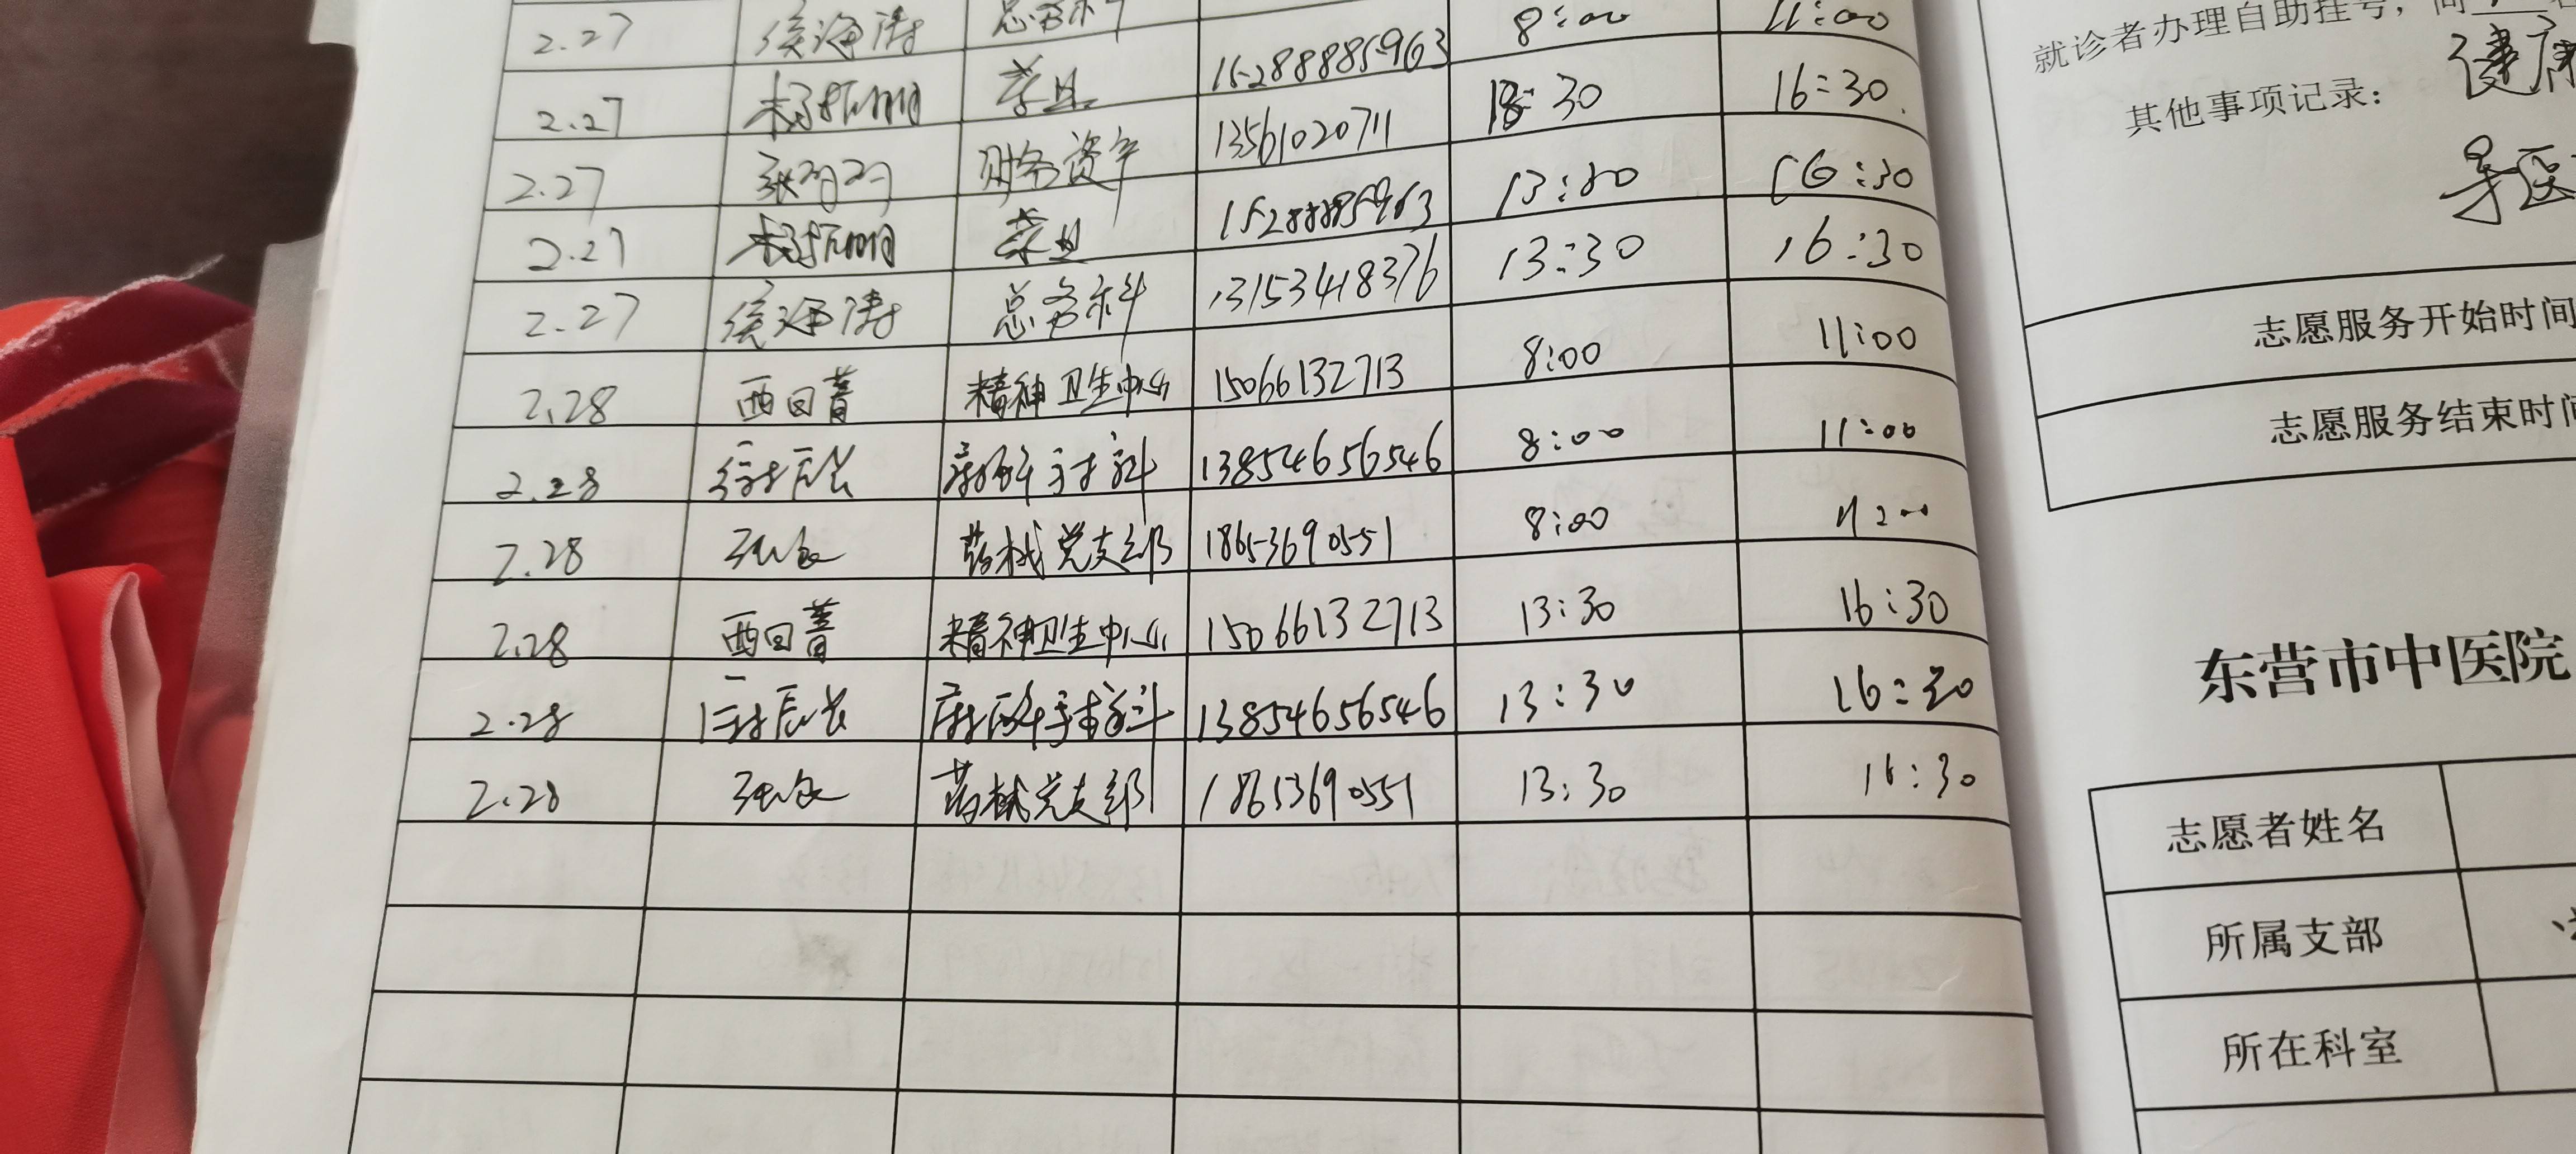 2.27 侯海涛 总务科 8:00 11:00
2.27 15288885963 18:30 16:30
2.27 财务资产 13561020711 13:30 16:30
2.27 15288885963 13:30 16:30
2.27 侯海涛 总务科 13153418376
2.28 西曰菁 精神卫生中心 15066132713 8:00 11:00
2.28 麻醉手术科 13854656546 8:00 11:00
2.28 药械党支部 18653690551 8:00 11:00
2.28 西曰菁 精神卫生中心 15066132713 13:30 16:30
2.28 麻醉手术科 13854656546 13:30 16:30
2.28 药械党支部 18653690551 13:30 16:30
就诊者办理自助挂号，向
其他事项记录：
健康
导医
志愿服务开始时间
志愿服务结束时间
东营市中医院
志愿者姓名
所属支部
所在科室